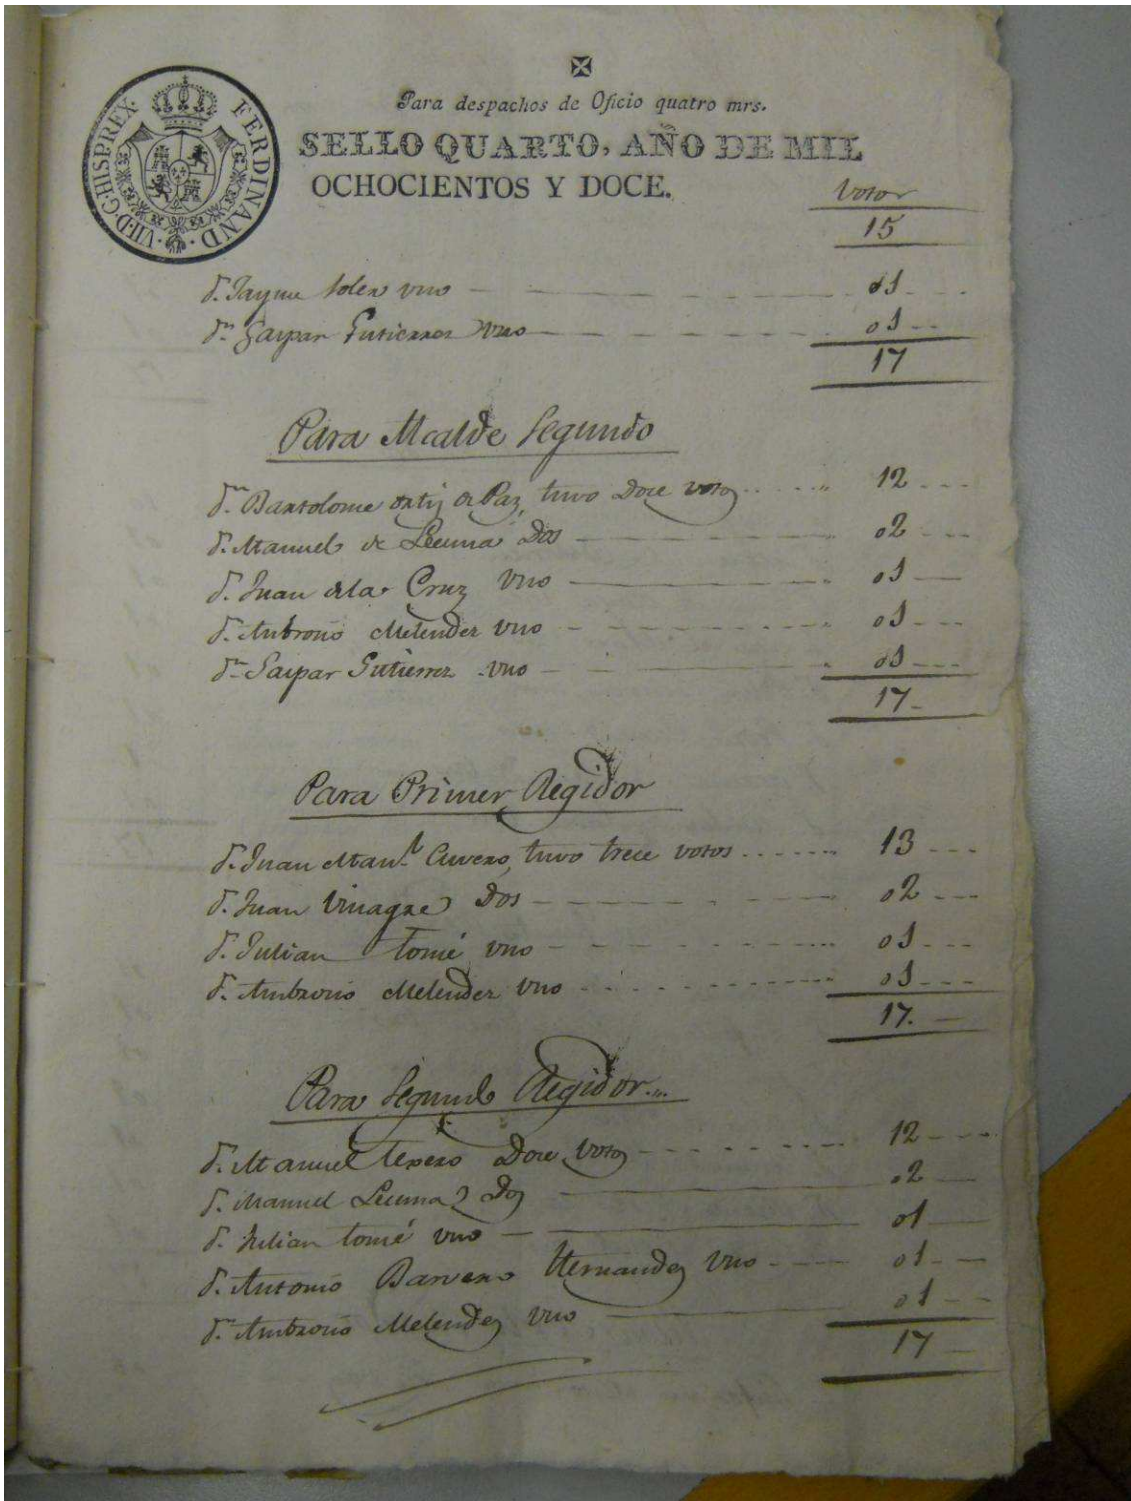 FERDINAND. VII. D. G. HISP. REX.
Para despachos de Oficio quatro mrs.
SELLO QUARTO, AÑO DE MIL
OCHOCIENTOS Y DOCE.
Votos
15
Dn. Jayme Soler vno 01
Dn. Gaspar Gutierrez vno 01
17
Para Alcalde Segundo
Dn. Bartolome Ortiz de Paz, tuvo Doce votos 12
Dn. Manuel de Lecuna Dos 02
Dn. Juan de la Cruz vno 01
Dn. Ambrosio Melendez vno 01
Dn. Gaspar Gutierrez vno 01
17
Para Primer Regidor
Dn. Juan Manl. Cuvero, tuvo trece votos 13
Dn. Juan Vinagre Dos 02
Dn. Julian Tomé vno 01
Dn. Ambrosio Melendez vno 01
17.
Para Segundo Regidor
Dn. Manuel Texero Doce votos 12
Dn. Manuel Lecuna Dos 02
Dn. Julian tomé vno 01
Dn. Antonio Barvero Hernandez vno 01
Dn. Ambrosio Melendez vno 01
17